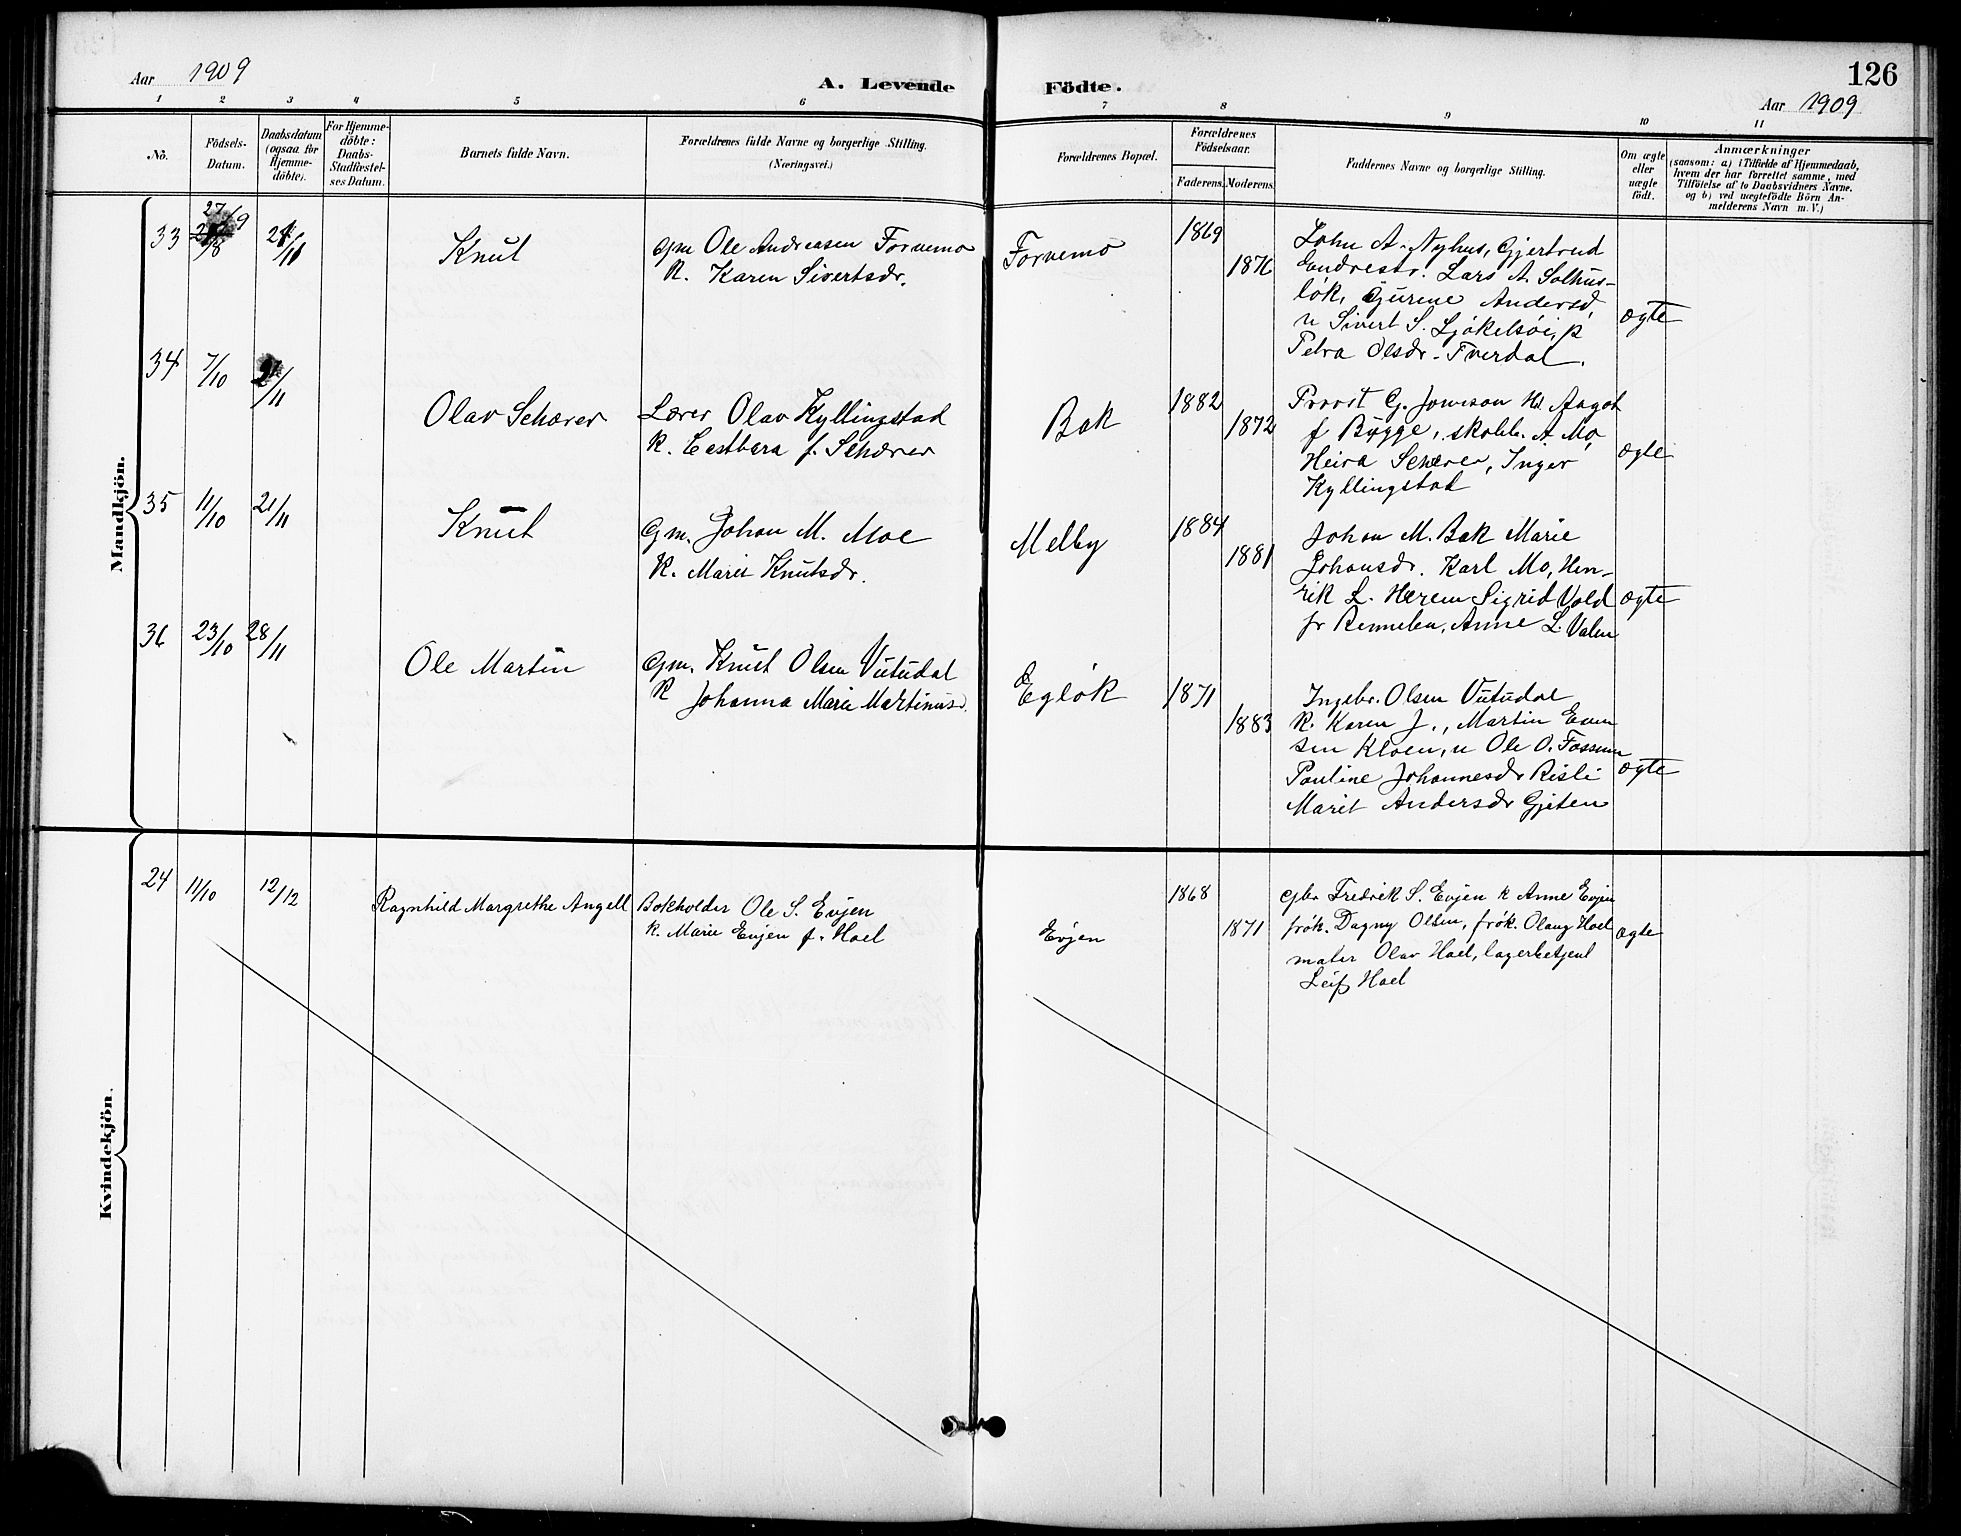 Aar 1909
A. Levende Födte.
126
Aar 1909
1 2 3 4 5 6 7 8 9 10 11
No.
Födsels-
Datum.
Daabsdatum
(ogsaa for
Hjemme-
döbte).
For Hjemme-
döbte:
Daabs-
Stadfæstel-
ses Datum.
Barnets fulde Navn.
Forældrenes fulde Navne og borgerlige Stilling.
(Næringsvei.)
Forældrenes Bopæl.
Forældrenes
Födselsaar.
Faderens. Moderens.
Faddernes Navne og borgerlige Stilling.
Om ægte
eller
uægte
födt.
Anmærkninger
(saasom: a) i Tilfælde af Hjemmedaab,
hvem der har forrettet samme, med
Tilföielse af to Daabsvidners Navne.
og b) ved uægtefödte Börn An-
melderens Navn m. V.)
Mandkjön.
33 27/9
Knut
gm Ole Andreasen Forvemo
K. Karen Sivertsdr.
Forvemo
1869
1876
John A. Nyhus, Gjertrud
Endresdr. Lars A. Solhus-
lök, Gurine Andersd,
u Sivert S.
Petra Olsdr.
ægte
34 7/10 21/11
Olav Schærer
Lærer Olav Kyllingstad
K. f. Schærer
Bak
1882
1872
Provst G. Jomson Hd. Aagot
f Bügge, skoleb. A. Mo,
Schærer, Inger
Kyllingstad
ægte
35 11/10 21/11
Knut
Gm. Johan M. Moe
K. Marit Knutsdr.
Melby
1884
1881
Johan M. Bak Marie
Johansdr. Karl Mo, Hen-
rik L. Hærem Sigrid Vold
fr Rennebu, Anne L. Valen
ægte
36 23/10 28/11
Ole Martin
Gm. Knut Olsen Vutudal
K Johanna Marie Martinusd.
Eglök
1871
1883
Ingebr. Olsen Vutudal
K. Karen J., Martin Even
sen Kloen, u Ole O. Fossum
Pauline Johannesdr Risli
Marit Andersdr Gjeten
ægte
Kvindekjön.
24 11/10 12/12
Ragnhild Margrethe Angell
Bokholder Ole S. Evjen
K. Marie Evjen f. Hoel
Evjen
1868
1871
gbr Fredrik S. Evjen k Anne Evjen
frök. Dagny Olsen, frök. Olaug Hoel
maler Olav Hoel, lagerbetjent
Leif Hoel
ægte